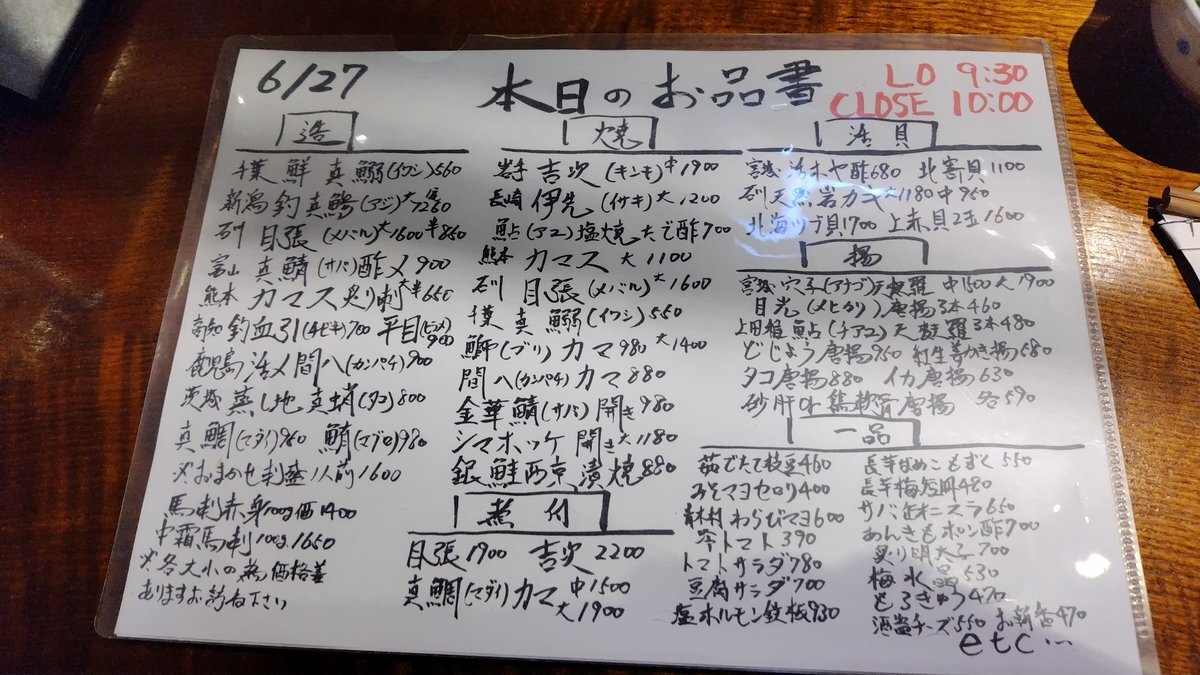 6/27
本日のお品書
LO 9:30
CLOSE 10:00
造
千葉 鮮 真鰯(イワシ)560
新潟 釣真鯵(アジ)大1260
石川 目張(メバル)大1600 半860
富山 真鯖(サバ)酢〆900
熊本 カマス炙り刺 大半650
高知 釣血引(チビキ)900 平目(ヒラメ)900
鹿児島 活〆間八(カンパチ)900
茨城 蒸し地真蛸(タコ)800
真鯛(マダイ)960 鮪(マグロ)980
※おまかせ刺盛1人前1600
馬刺赤身100g価1400
中霜馬刺100g1650
※各大小の為価格差
ありますお訪ね下さい
焼
岩手 吉次(キンキ)中1900
長崎 伊先(イサキ)大1200
鮎(アユ)塩焼たで酢700
熊本 カマス 大1100
石川 目張(メバル)大1600
千葉 真鰯(イワシ)550
鰤(ブリ)カマ980 大1400
間八(カンパチ)カマ880
金華鯖(サバ)開き980
シマホッケ開き大1180
銀鮭西京漬焼880
煮付
目張1900 吉次2200
真鯛(マダイ)カマ中1500
大1900
活貝
宮城 活ホヤ酢680 北寄貝1100
石川天然岩カキ大1180中950
北海ツブ貝1700 上赤貝2玉1600
揚
宮城 穴子(アナゴ)天婦羅 中1500大1900
目光(メヒカリ)唐揚3本460
上田稚鮎(チアユ)天麩羅3本480
どじょう唐揚950 新生姜かき揚580
タコ唐揚880 イカ唐揚630
砂肝or鶏軟骨唐揚 各590
一品
茹でたて枝豆460
みそマヨセロリ400
青木村わらびマヨ600
冷トマト390
トマトサラダ780
豆腐サラダ700
塩ホルモン鉄板930
長芋なめこもずく550
長芋梅短冊480
サバ缶オニスラ650
あんきもポン酢700
炙り明太子700
梅水晶530
もろきゅう470
酒盗チーズ550 お新香470
etc…